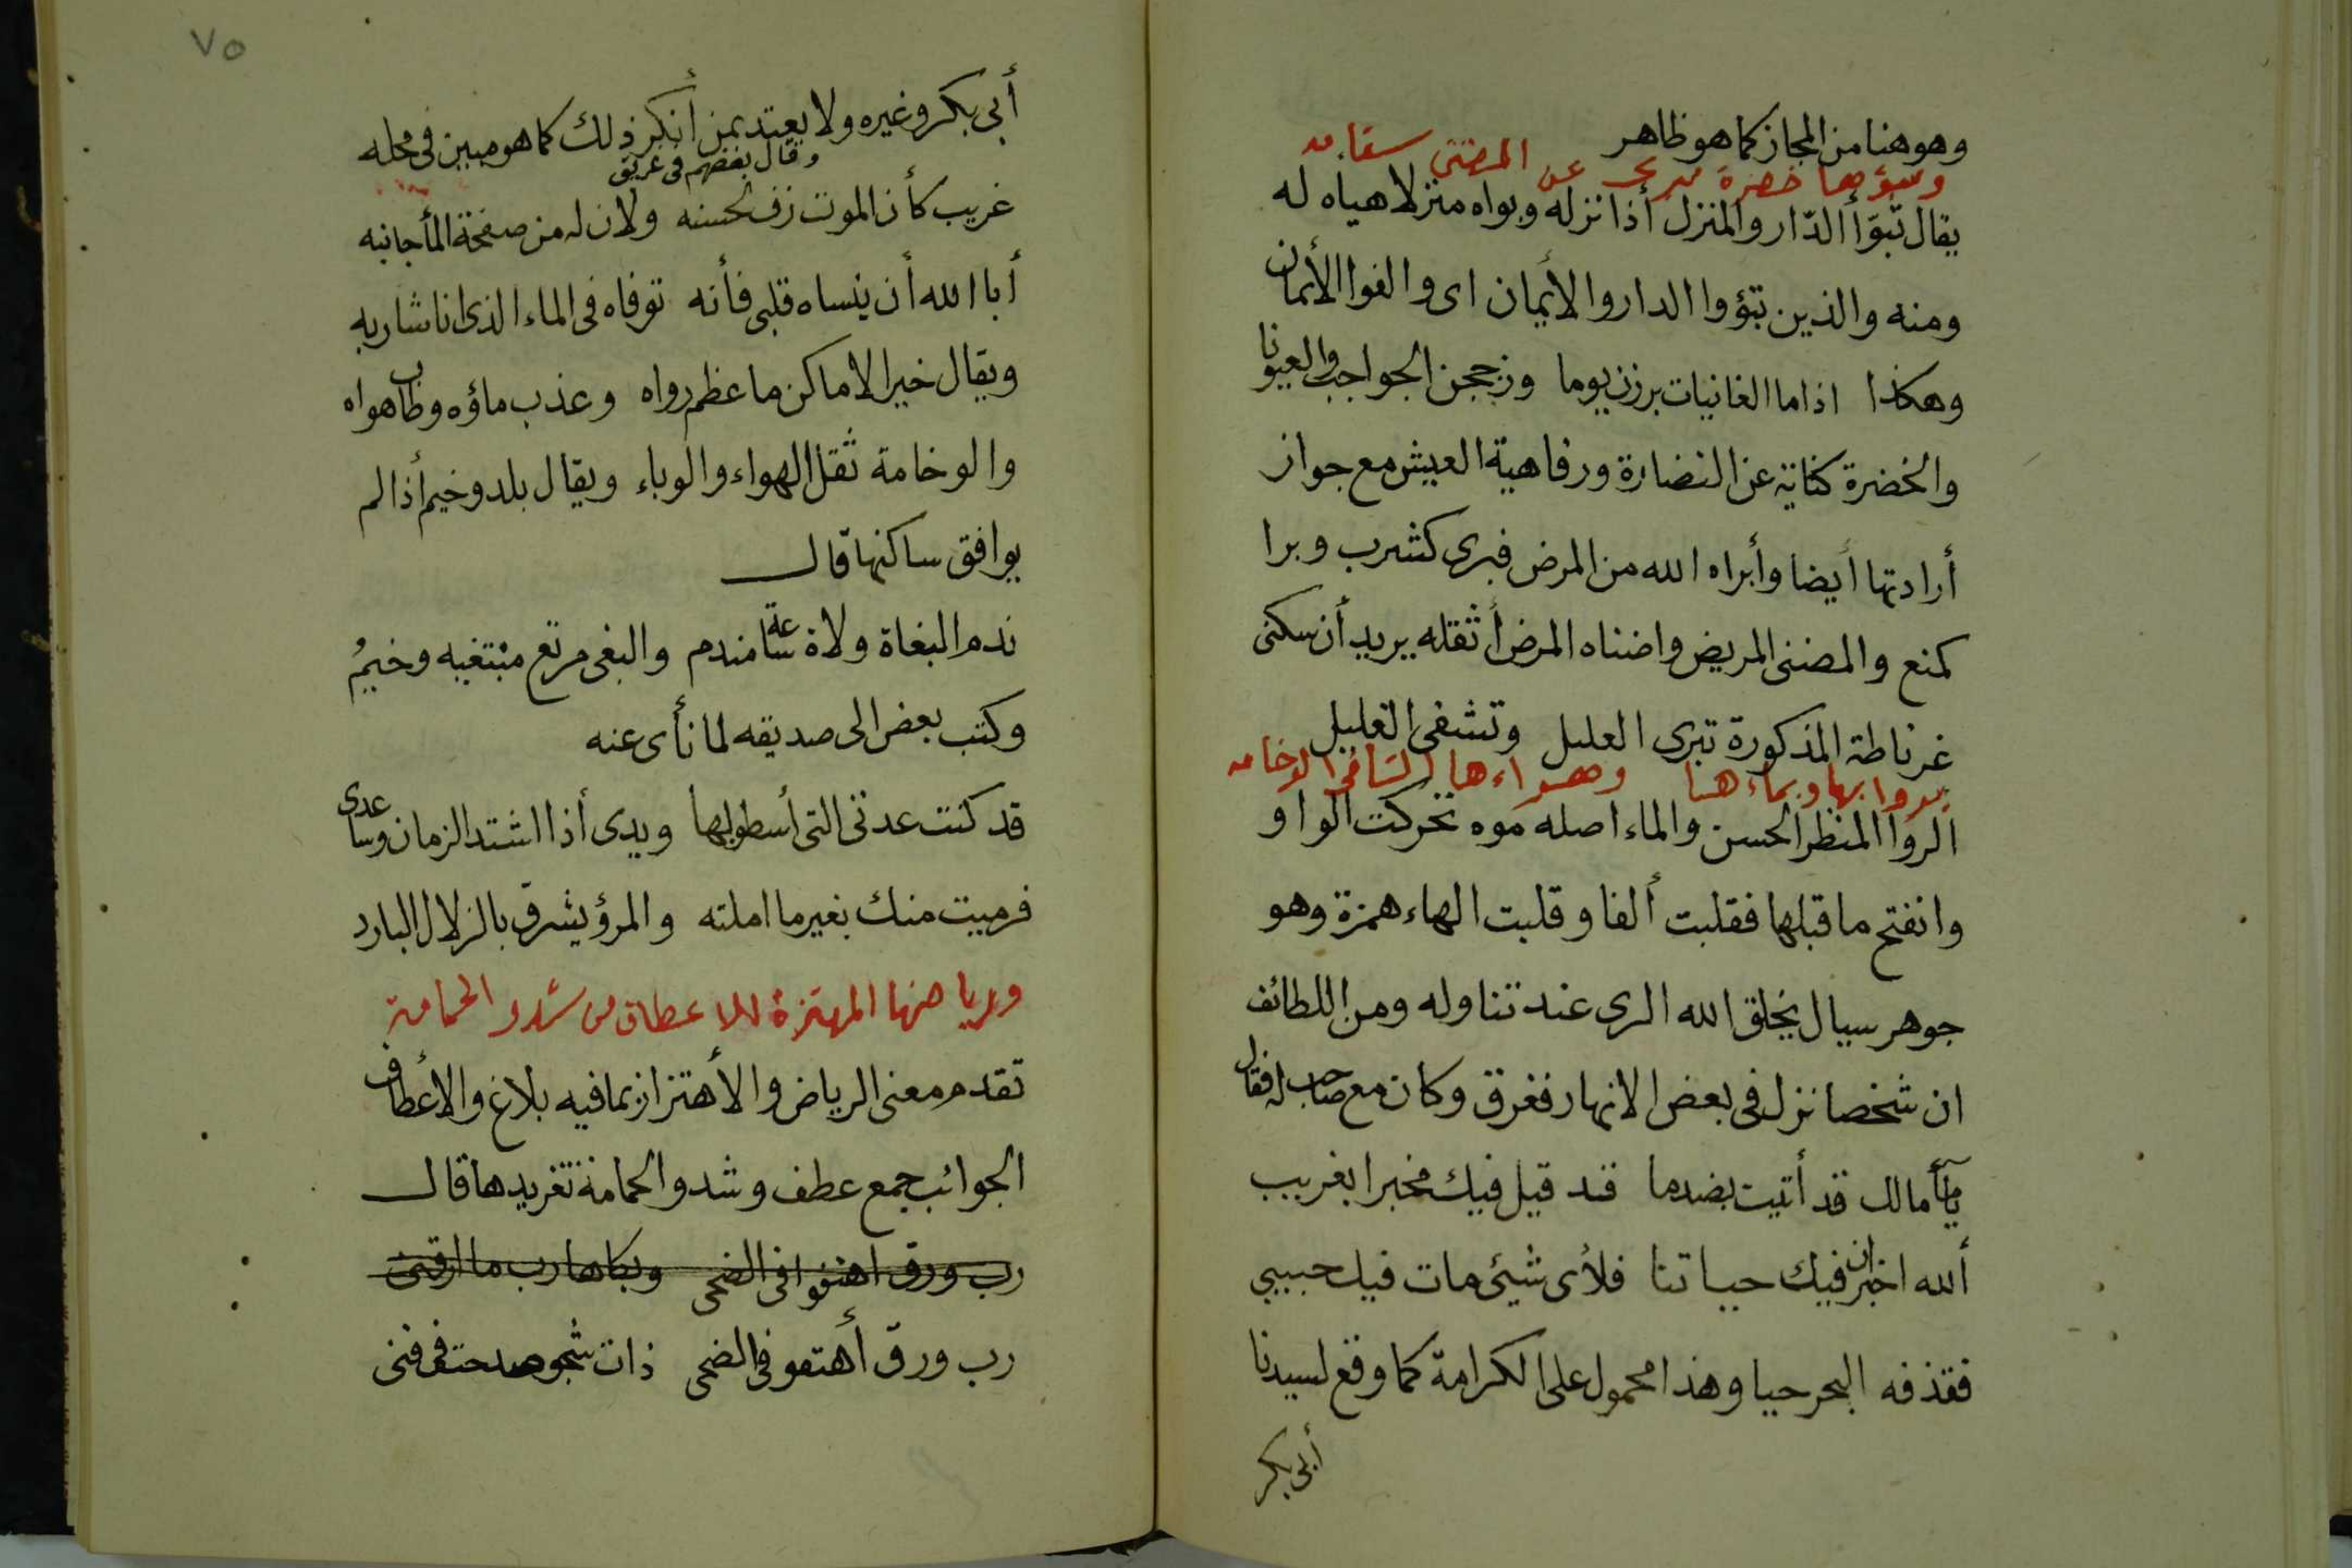 وهو هنا من المجاز كما هو ظاهر
وتبوؤها خضرة تبرى عن المضنى سقامه
يقال تبوّأ الدّار والمنزل أذا نزله وبواه منزلا هياه له
ومنه والذين تبؤوا الدار والأيمان اى والفوا الأيمان
وهكذا اذا ما الغانيات برزن يوما وزججن الحواجب والعيونا
والخضرة كناية عن النضارة ورفاهية العيش مع جواز
أرادتها أيضا وأبراه الله من المرض فبرى كشرب وبرا
كمنع والمضنى المريض واضناه المرض أثقله يريد أن سكنى
غرناطة المذكورة تبرى العليل وتشفى الغليل
بروابها وبماءها وهواءها الشافى الوخامه
الروا المنظر الحسن والماء اصله موه تحركت الواو
وانفتح ما قبلها فقلبت ألفا وقلبت الهاء همزة وهو
جوهر سيال يخلق الله الرى عند تناوله ومن اللطائف
ان شخصا نزل فى بعض الانهار فغرق وكان مع صاحب له فقال
يا مآ مالك قد أتيت بضد ما قد قيل فيك مخبرا بغريب
أالله اخبر ان فيك حياتنا فلأى شيئ مات فيك حبيبي
فقذفه البحر حيا وهذا محمول على الكرامة كما وقع لسيدنا
أبى بكر
٧٥
أبى بكر وغيره ولا يعتد بمن أنكر ذلك كما هو مبين فى محله
وقال بعضهم فى غريق
غريب كأن الموت رق لحسنه ولان له من صفحة المأ جانبه
أبا الله أن ينساه قلبى فأنه توفاه فى الماء الذى انا شاربه
ويقال خير الاماكن ما عظم رواه وعذب ماؤه وطاب هواه
والوخامة ثقل الهواء والوباء ويقال بلد وخيم أذا لم
يوافق ساكنها قال
ندم البغاة ولاة ساعة مندم والبغى مرتع مبتغيه وخيمُ
وكتب بعض الى صديقه لما نأى عنه
قد كنت عدتى التى أسطو بها ويدى أذا اشتد الزمان وساعدى
فرميت منك بغير ما املته والمرؤ يشرق بالزلال البارد
ورياضها المهتزة للاعطاف من شدو الحمامة
تقدم معنى الرياض والأهتزاز بما فيه بلاغ والأعطاف
الجوانب جمع عطف وشدو الحمامة تغريدها قال
رب ورق اهتفوا فى الضحى وبكاها رب ما ارقنى
رب ورق أهتفو فى الضحى ذات شجو صدحت فى فنى